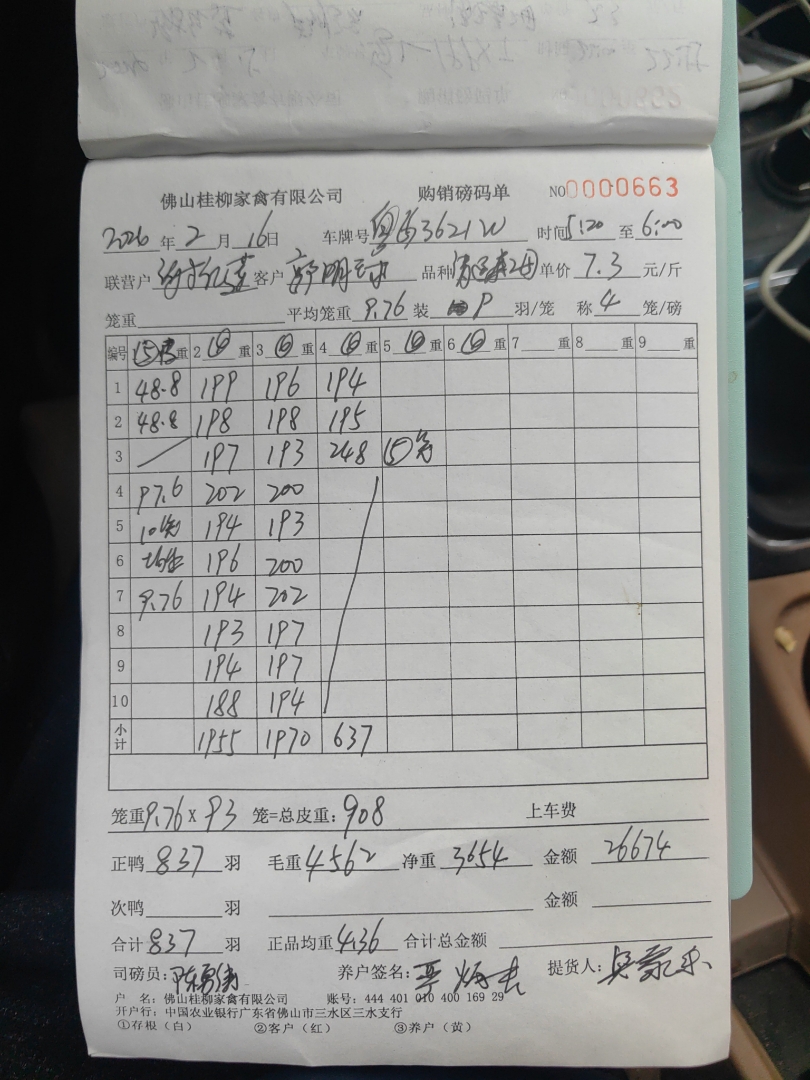 佛山桂柳家禽有限公司 购销磅码单 NO0000663
2026年2月16日 车牌号 粤 3621W 时间5:20至6:00
联营户 客户 郭明 品种 单价7.3元/斤
笼重 平均笼重9.76装9羽/笼 称4笼/磅
编号 ⑤ 重 2 ④ 重 3 ④ 重 4 ④ 重 5 ④ 重 6 ④ 重 7 重 8 重 9 重
1 48.8 199 196 194
2 48.8 198 198 195
3 197 193 248 ⑤笼
4 97.6 202 200
5 10笼 194 193
6 196 200
7 9.76 194 202
8 193 197
9 194 197
10 188 194
小计 1955 1970 637
笼重9.76×93笼=总皮重:908 上车费
正鸭837羽 毛重4562 净重3654 金额26674
次鸭 羽 金额
合计837羽 正品均重4.36 合计总金额
司磅员: 养户签名: 提货人:
户 名:佛山桂柳家禽有限公司 账号:444 401 010 400 169 29
开户行:中国农业银行广东省佛山市三水区三水支行
①存根(白) ②客户(红) ③养户(黄)